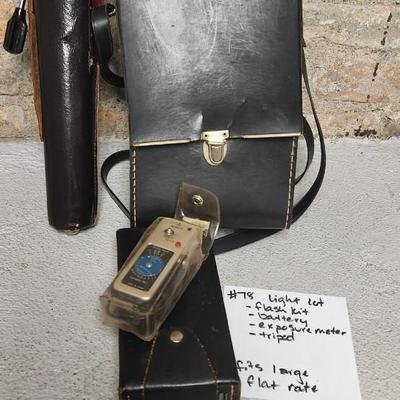 #78 light lot
- flash kit
- battery
- exposure meter
- tripod
fits large
flat rate